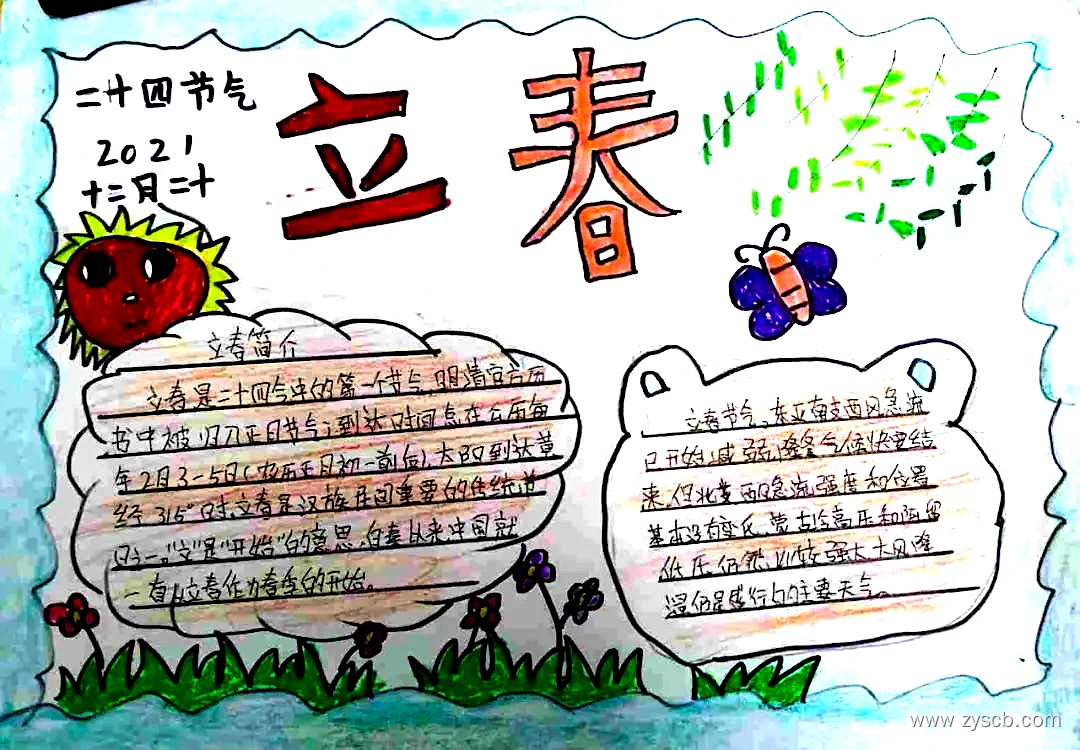 二十四节气
2021
十二月二十
立春
立春简介
立春是二十四气中的第一个节气,明清官方历
书中被归入正月节气;到达时间总在公历每
年2月3-5日(农历正月初一前后),太阳到达黄
经315°时,立春是汉族民间重要的传统节
日之一。"立"是"开始"的意思,自秦以来中国就
一直以立春作为春季的开始。
立春节气,东亚南支西风急流
已开始减弱,隆冬气候快要结
束,但北支西风急流强度和位置
基本没有变化,蒙古冷高压和阿留
低压仍然比较强大,大风降
温仍是盛行的主要天气。
www.zyscb.com